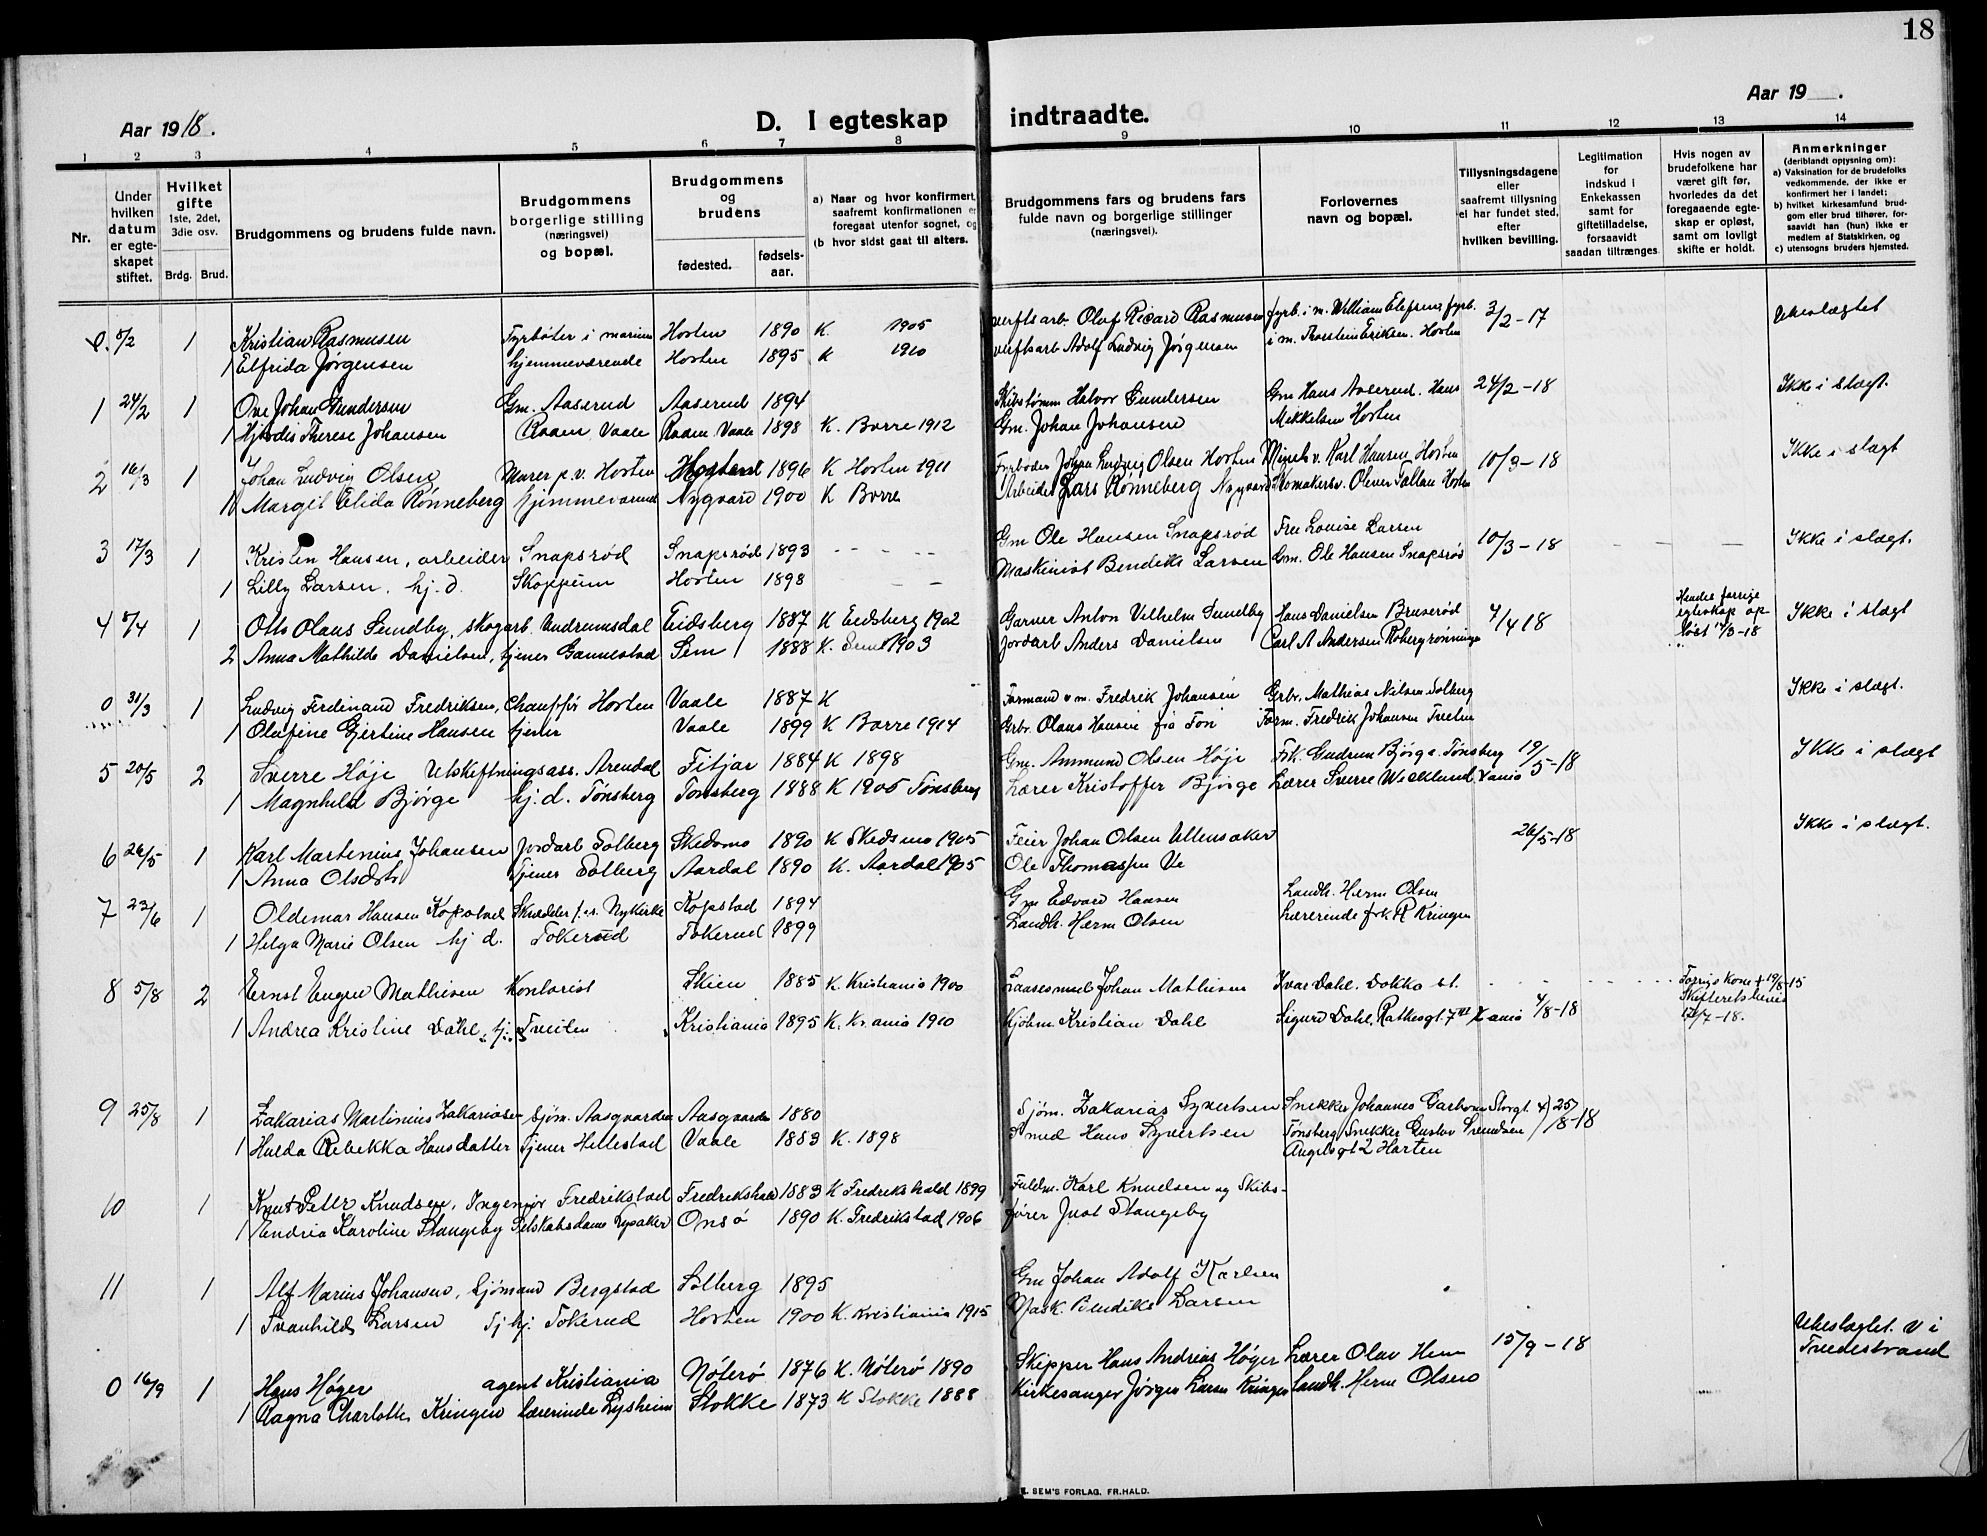 18
Aar 1918.
D. I egteskap indtraadte.
Aar 19__.
1 2 3 4 5 6 7 8 9 10 11 12 13 14
Nr.
Under hvilken datum er egte-skapet stiftet.
Hvilket gifte 1ste, 2det, 3die osv.
Brdg. Brud.
Brudgommens og brudens fulde navn.
Brudgommens borgerlige stilling (næringsvei) og bopæl.
Brudgommens og brudens
fødested. fødsels-aar.
a) Naar og hvor konfirmert, saafremt konfirmationen er foregaat utenfor sognet, og
(b hvor sidst gaat til alters.
Brudgommens fars og brudens fars fulde navn og borgerlige stillinger (næringsvei).
Forlovernes navn og bopæl.
Tillysningsdagene eller saafremt tillysning ei har fundet sted, efter hvilken bevilling.
Legitimation for indskud i Enkekassen samt for giftetilladelse, forsaavidt saadan tiltrænges
Hvis nogen av brudefolkene har været gift før, hvorledes da det foregaaende egte-skap er opløst, samt om lovligt skifte er holdt.
Anmerkninger (deriblandt oplysning om): a) Vaksination for de brudefolks vedkommende, der ikke er konfirmert her i landet; b) hvilket kirkesamfund brud-gom eller brud tilhører, for-saavidt han (hun) ikke er medlem af Statskirken, og c) utensogns bruders hjemsted.
0. 5/2 1 Kristian Rasmusen Fyrbøter i marinen Horten 1890 K. 1905 verftsarb. Olaf Ricard Rasmusen fyrb. i m. William fyrb. 3/2-17 Ubeslægtet
1 Elfrida Jørgensen hjemmeværende Horten 1895 K 1910 verftsarb Adolf Ludvig Jørgensen i m. Thorstein Eriksen. Horten
1 24/2 1 Ove Johan Gundersen Gm. Aaserud Aaserud 1894 Skibstømm Halvor Gundersen Gm Hans Aaserud. Hans 24/2-18 Ikke i slægt.
1 Hjørdis Therese Johansen Raaen Vaale Raaen Vaale 1898 K. Borre 1912 Gm. Johan Johansen Mekkelsen Horten
2 16/3 1 Johan Ludvig Olsen Murer p.v. Horten Horten 1896 K Horten 1911 Fyrbøder Johan Ludvig Olsen Horten v. Karl Hansen Horten 10/3-18 Ikke i slægt
1 Margit Elida Rønneberg hjemmeværende Nygaard 1900 K Borre Arbeider Lars Rønneberg Nygaard Skomakersv. Oliver Tallau Horten
3 17/3 1 Kristen Hansen, arbeider Snapsrød Snapsrød 1893 - - - - Gm Ole Hansen Snapsrød Fru Louise Larsen 10/3-18 - - - Ikke i slægt.
1 Lilly Larsen. hj. d. Skoppum Horten 1898 - - Maskinist Bendiks Larsen Gm. Ole Hansen Snapsrød
4 8/4 1 Otto Olaus Sundby, skogarb. Undrumsdal Eidsberg 1887 K Eidsberg 1902 Garver Anton Vilhelm Sundby Hans Danielsen Bruserød 7/4 18 Hendes forrige egteskap op løst 12/3-18 Ikke i slægt
2 Anna Mathilde Danielsen, tjener Gannestad Sem 1888 K. Sem 1903 Jordarb Anders Danielsen Carl A Andersen Robergrønningen
0 31/3 1 Ludvig Ferdinand Fredriksen, Chauffør Horten Vaale 1887 K Formand v m. Fredrik Johansen Grbr. Mathias Nilsen Solberg Ikke i slægt.
1 Olufine Gjertine Hansen tjener Vaale 1899 K Borre 1914 Grbr. Olaus Hansen fra Fon Form. Fredrik Johansen Tveiten
5 20/5 2 Sverre Høje Utskiftningsass. Arendal Fitjar 1884 K 1898 Gm. Ammund Olsen Høje Frk. Gudrun Bjørge. Tønsberg 19/5-18 Ikke i slægt
1 Magnhild Bjørge hj. d. Tønsberg Tønsberg 1888 K 1905 Tønsberg Lærer Kristoffer Bjørge Lærer Sverre Wicklund
6 26/5 1 Karl Martinius Johansen Jordarb Solberg Skedsmo 1890 K Skedsmo 1905 Feier Johan Olsen Ullensaker 26/5-18 Ikke i slægt.
1 Anna Olsdat. Tjener Solberg Aardal 1890 K. Aardal 1905 Ole Thomassen Ve
7 23/6 1 Oldemar Hansen Kopstad Skrædder f.s. Nykirke Kopstad 1894 Gm Edvard Hansen Landh. Herm Olsen
1 Helga Marie Olsen hj d. Tokerud Tokerud 1899 Landh. Herm Olsen Lærerinde frk. R Kringen
8 5/8 2 Ernst Eugen Mathisen Kontorist Skien 1885 K. Kristiania 1900 Laasesmed Johan Mathisen Ivar Dahl. Dokka st. Forrige kone † 19/8-15 Skifteretsbevis 12/7-18.
1 Andrea Kristine Dahl, hj: Tveiten Kristiania 1895 K. Kr.ania 1910 Kjøbm Kristian Dahl Sigurd Dahl, Rathesgt. 7III Kania 4/8-18
9 25/8 1 Zakarias Martinius Zakariasen Sjøm. Aasgaarden Aasgaarden 1880 Sjøm. Zakarias Syvertsen Snekker Johannes Garbom Storgt. 4) 25/8-18
1 Hulda Rebekka Hansdatter Tjener Hillestad Vaale 1883 K. 1898 Smed Hans Syvertsen Tønsberg, Snekker Gustav Svendsen Augelsgt 2 Horten
10 1 Knut Peter Knudsen, Ingeniør Fredrikstad Fredrikshald 1883 K Fredrikshald 1899 Fuldm. Karl Knudsen og Skibs-
1 Andrea Karoline Stangeby Selskabsdame Lysaker Onsø 1890 K. Fredrikstad 1906 fører Just Stangeby
11 1 Alf Marius Johansen, Sjømand Bergstad Solberg 1895 Gm Johan Adolf Karlsen
1 Svanhild Larsen Tj hj. Tokerud Horten 1900 K. Kristiania 1915 Mask. Bendiks Larsen
0 16/9 1 Hans Høger agent Kristiania Nøterø 1876 K. Nøterø 1890 Skipper Hans Andreas Høger Lærer Olav Hem 15/9-18 Ubeslægtet. V i Tvedestrand
1 Ragna Charlotte Kringen Lærerinde Lysheim Stokke 1873 K Stokke 1888 Kirkesanger Jørgen Larsen Kringen Landh. Herm Olsen
E. SEM'S FORLAG. FR.HALD.